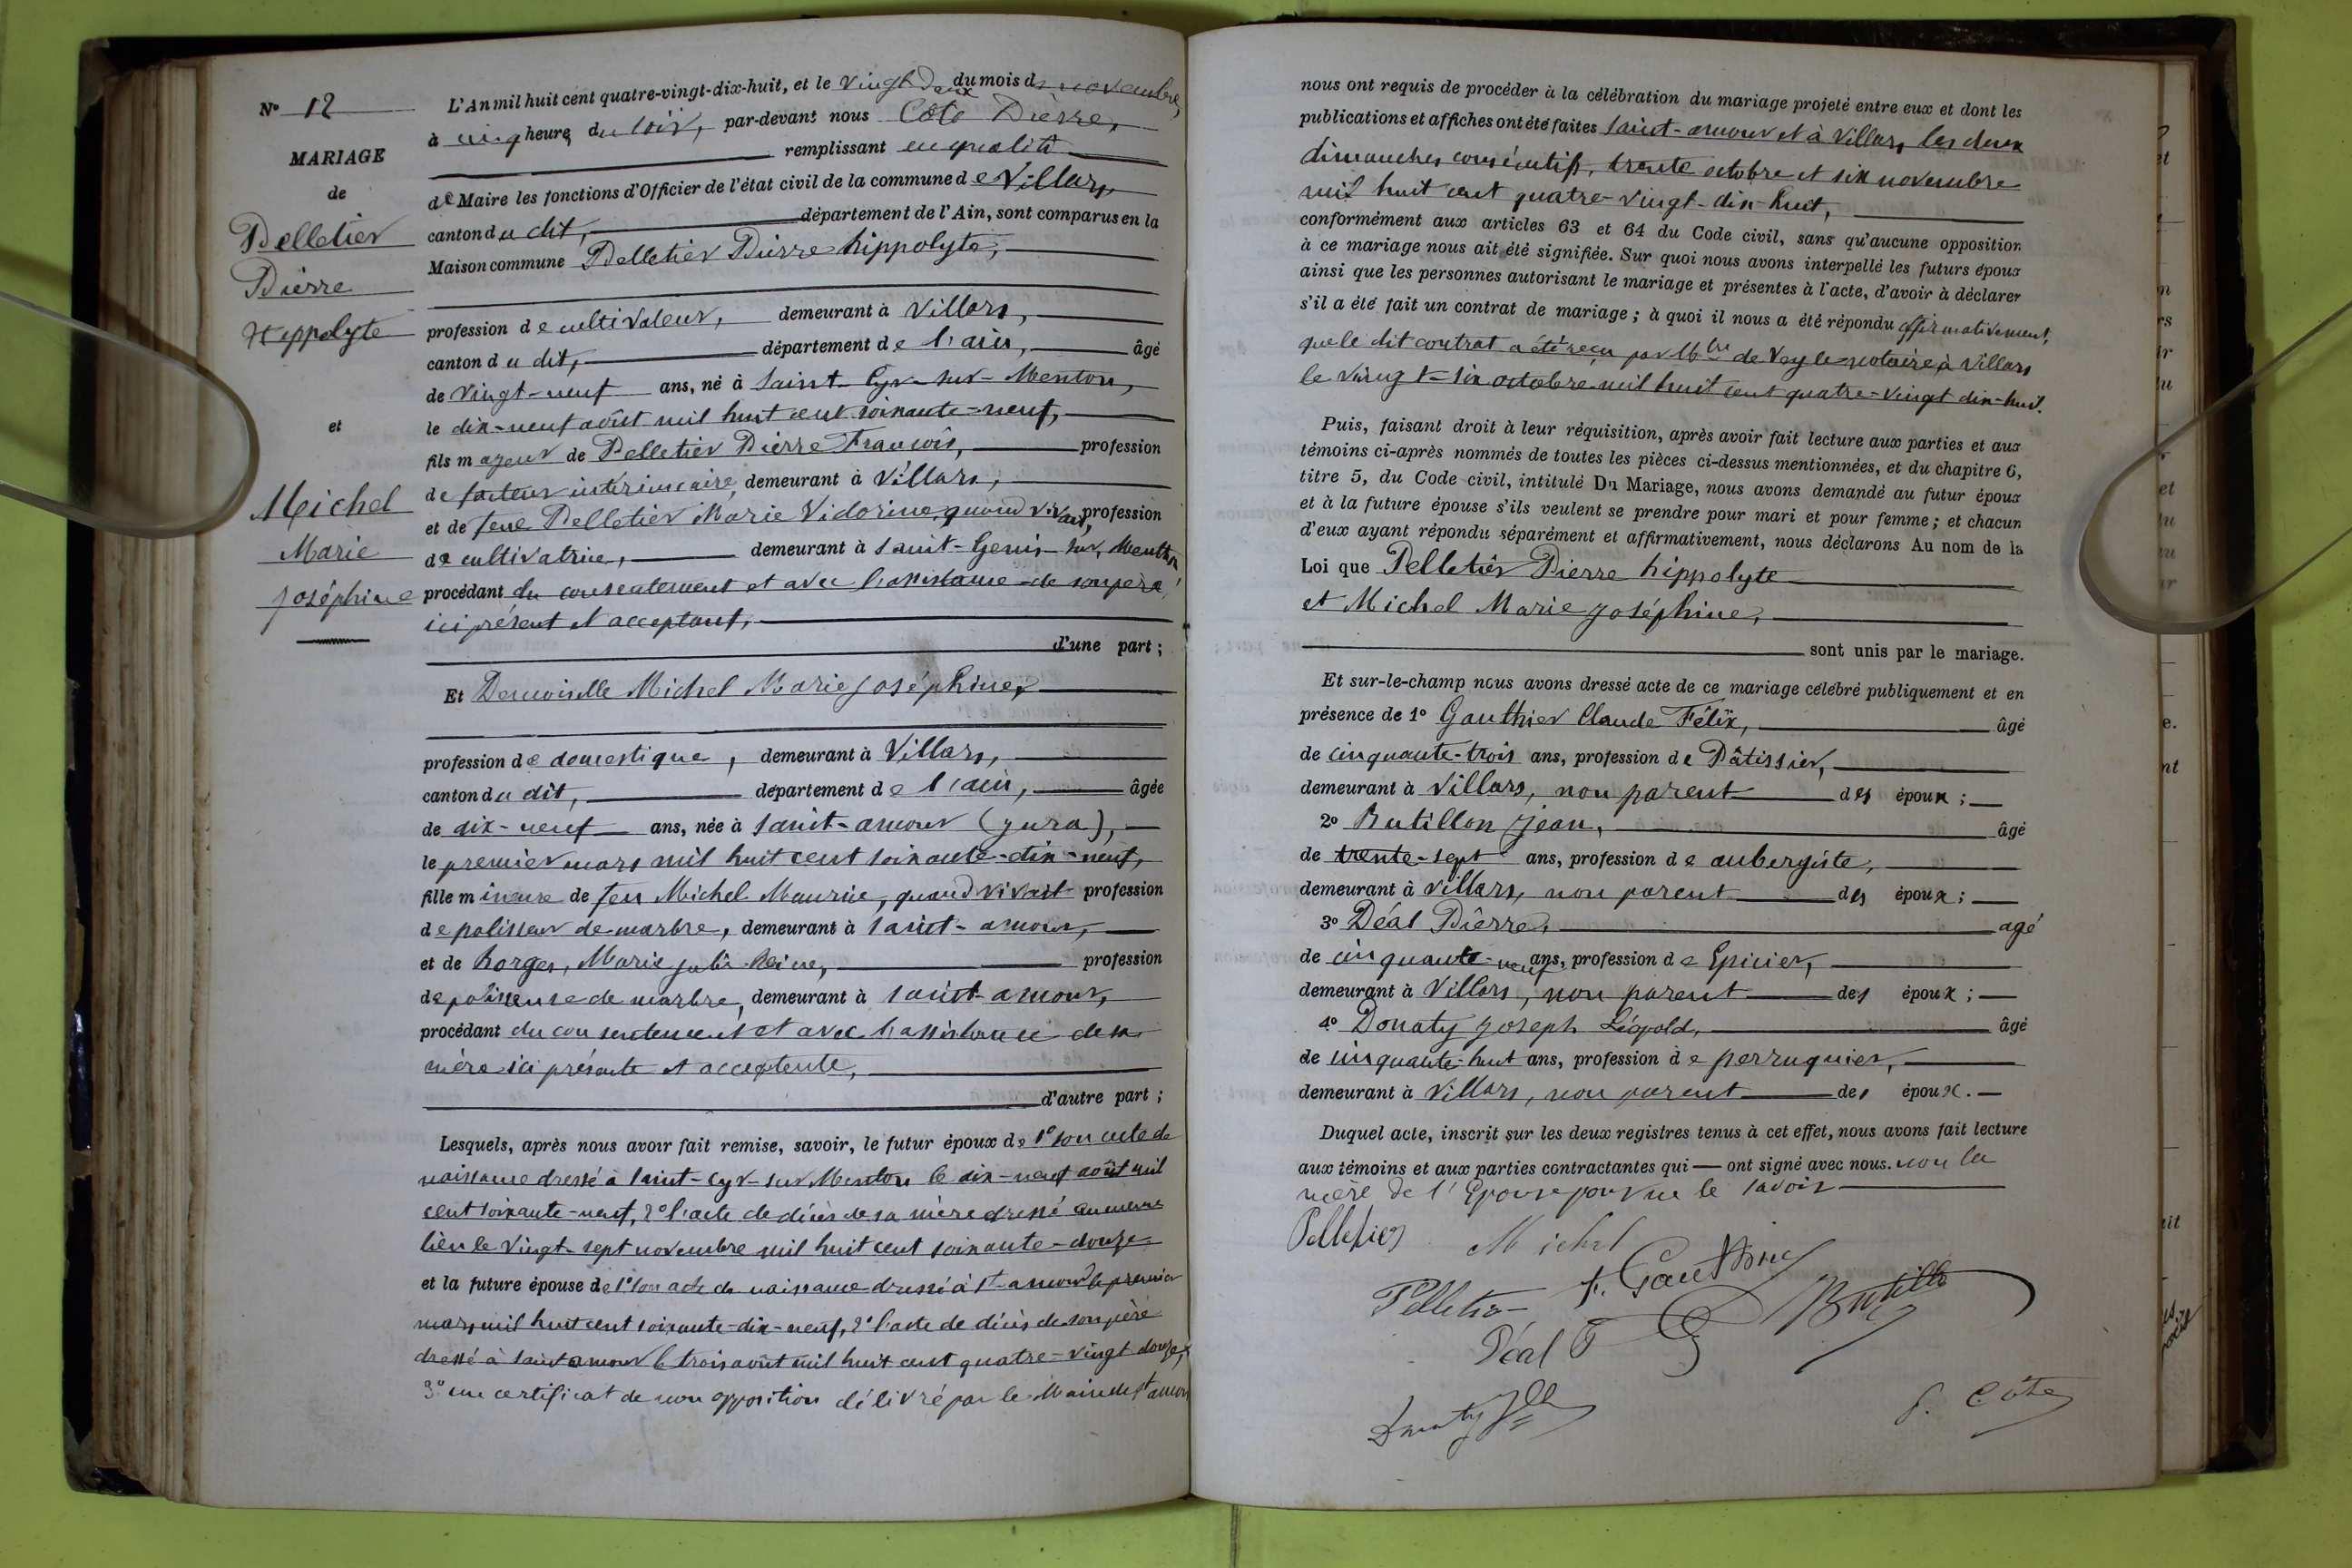 N° 12
MARIAGE
de
Pelletier
Pierre
Hippolyte
et
Michel
Marie
Joséphine
L'An mil huit cent quatre-vingt-dix-huit, et le vingt deux du mois de novembre,
à cinq heures du soir, par-devant nous Côte Pierre,
remplissant en qualité
de Maire les fonctions d'Officier de l'état civil de la commune de Villars,
canton du dit, département de l'Ain, sont comparus en la
Maison commune Pelletier Pierre hippolyte,
profession de cultivateur, demeurant à Villars,
canton du dit, département de l'ain, âgé
de vingt-neuf ans, né à Saint-Cyr-sur-Menton,
le dix-neuf août mil huit cent soixante-neuf,
fils majeur de Pelletier Pierre François, profession
de facteur intérimaire, demeurant à Villars,
et de feue Pelletier Marie Vidorine, quand vivait, profession
de cultivatrice, demeurant à Saint-Genis-sur, Menthon
procédant du consentement et avec l'assistance de son père,
ici présent et acceptant,
d'une part;
Et Demoiselle Michel Marie Joséphine,
profession de domestique, demeurant à Villars,
canton du dit, département de l'ain, âgée
de dix-neuf ans, née à Saint-amour (Jura),
le premier mars mil huit cent soixante-dix-neuf,
fille mineure de feu Michel Maurice, quand vivait profession
de polisseur de marbre, demeurant à Saint-amour,
et de horges, Marie julie Reine, profession
de polisseuse de marbre, demeurant à Saint-amour,
procédant du consentement et avec l'assistance de sa
mère ici présente et acceptente,
d'autre part;
Lesquels, après nous avoir fait remise, savoir, le futur époux de 1° son acte de
naissance dressé à Saint-Cyr-sur Menton le dix-neuf août mil
cent soixante-neuf, 2° l'acte de décès de sa mère dressé au même
lieu le vingt-sept novembre mil huit cent soixante-douze
et la future épouse de 1° son acte de naissance dressé à St-amour le premier
mars mil huit cent soixante-dix-neuf, 2° l'acte de décès de son père
dressé à Saint amour le trois août mil huit cent quatre-vingt douze,
3° un certificat de non opposition délivré par le Maire de St amour
nous ont requis de procéder à la célébration du mariage projeté entre eux et dont les
publications et affiches ont été faites Saint-amour et à Villars, les deux
dimanches consécutifs, trente octobre et six novembre
mil huit cent quatre-vingt-dix-huit,
conformément aux articles 63 et 64 du Code civil, sans qu'aucune opposition
à ce mariage nous ait été signifiée. Sur quoi nous avons interpellé les futurs époux
ainsi que les personnes autorisant le mariage et présentes à l'acte, d'avoir à déclarer
s'il a été fait un contrat de mariage; à quoi il nous a été répondu affirmativement,
que le dit contrat a été reçu par Mtre de Veyle notaire à Villars
le vingt-six octobre mil huit cent quatre-vingt dix-huit.
Puis, faisant droit à leur réquisition, après avoir fait lecture aux parties et aux
témoins ci-après nommés de toutes les pièces ci-dessus mentionnées, et du chapitre 6,
titre 5, du Code civil, intitulé Du Mariage, nous avons demandé au futur époux
et à la future épouse s'ils veulent se prendre pour mari et pour femme; et chacun
d'eux ayant répondu séparément et affirmativement, nous déclarons Au nom de la
Loi que Pelletier Pierre hippolyte
et Michel Marie Joséphine,
sont unis par le mariage.
Et sur-le-champ nous avons dressé acte de ce mariage célébré publiquement et en
présence de 1° Gauthier Claude Félix, âgé
de cinquante-trois ans, profession de Pâtissier,
demeurant à Villars, non parent des époux;
2° Butillon Jean, âgé
de trente-sept ans, profession de aubergiste,
demeurant à Villars, non parent des époux;
3° Déal Pierre, agé
de cinquante-neuf ans, profession de Epicier,
demeurant à Villars, non parent des époux;
4° Donaty Joseph Léopold, âgé
de cinquante-huit ans, profession de perruquier,
demeurant à Villars, non parent des époux.
Duquel acte, inscrit sur les deux registres tenus à cet effet, nous avons fait lecture
aux témoins et aux parties contractantes qui — ont signé avec nous. non la
mère de l'Epouse pour ne le savoir
Pelletier Michel
Pelletier F. Gauthier
Déal P Butillon
Donaty P. Côte